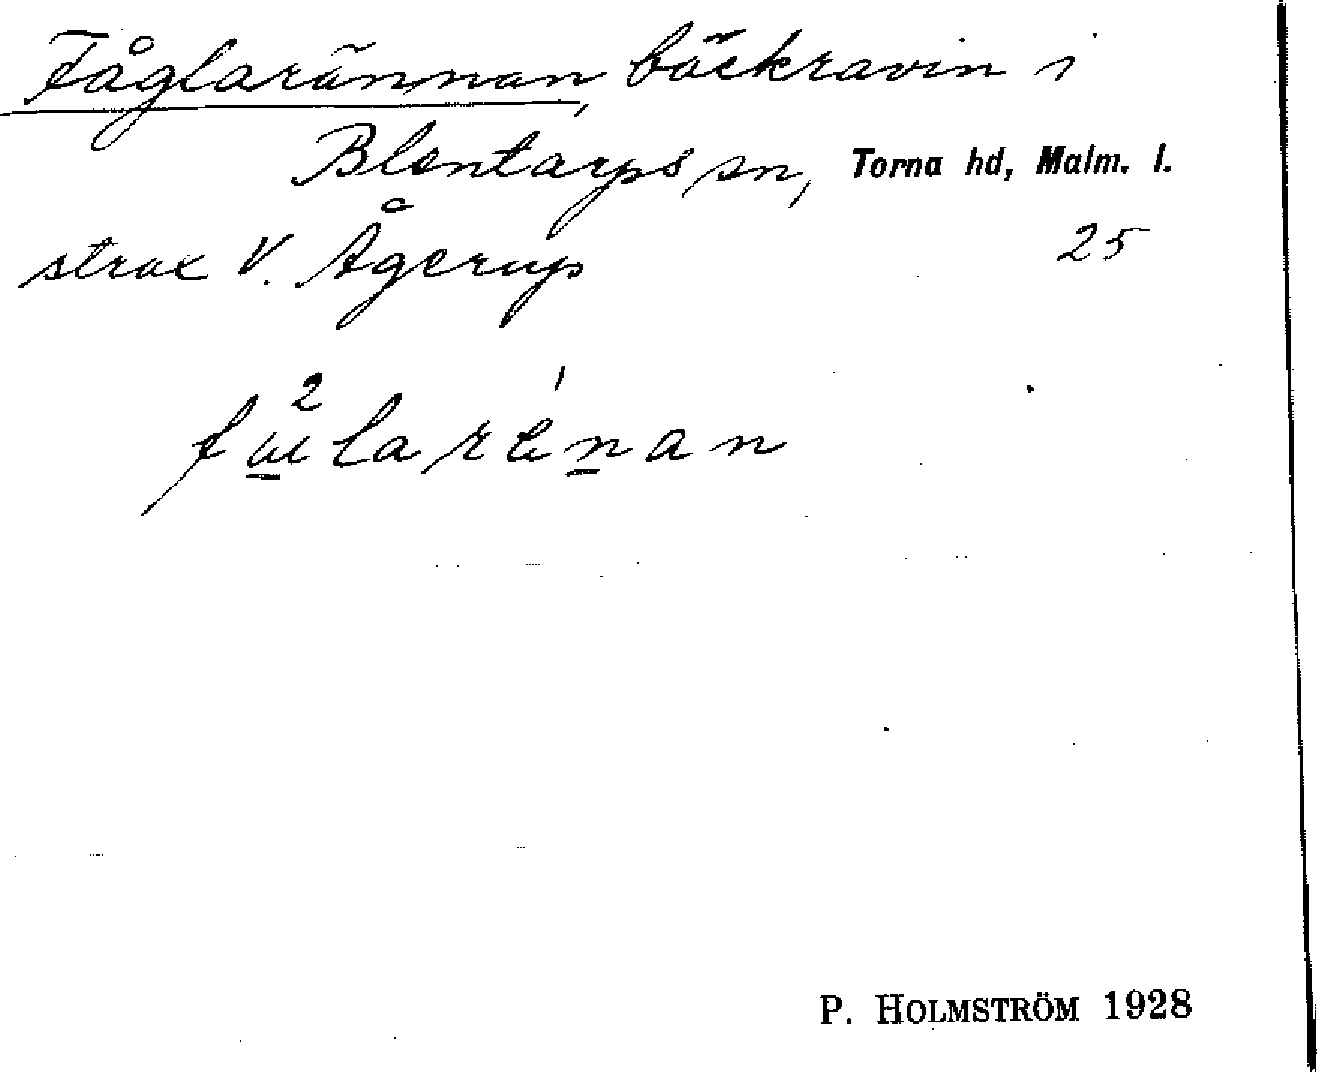 Fåglarännan, bäckravin i
Blentarps sn, Torna hd, Malm. l.
strax V. Ågerup 25
P. HOLMSTRÖM 1928